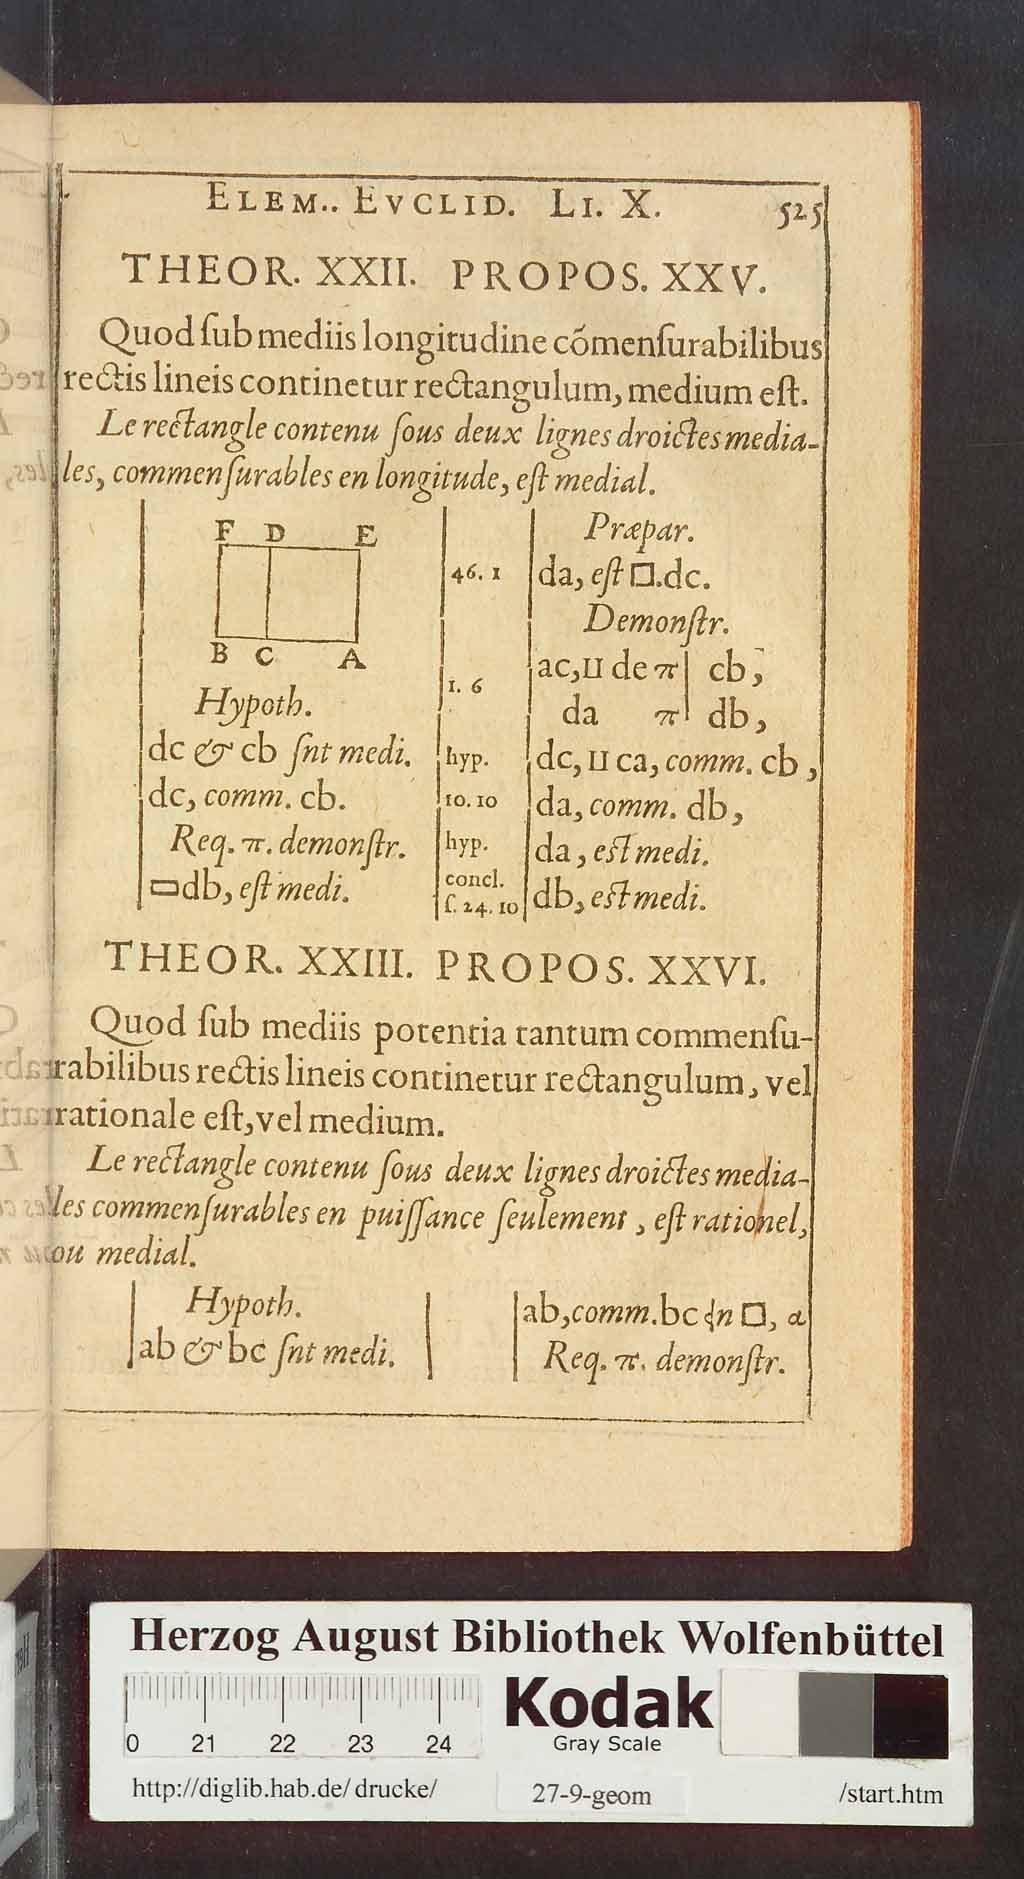 ELEM.. EVCLID. LI. X. 525
THEOR. XXII. PROPOS. XXV.
Quod ſub mediis longitudine cõmenſurabilibus
rectis lineis continetur rectangulum, medium eſt.
Le rectangle contenu ſous deux lignes droictes media-
les, commenſurables en longitude, eſt medial.
F D E
B C A
Hypoth.
dc & cb ſnt medi.
dc, comm. cb.
Req. π. demonſtr.
▭db, eſt medi.
46. 1
1. 6
hyp.
10. 10
hyp.
concl.
ſ. 24. 10
Præpar.
da, eſt □.dc.
Demonſtr.
ac, II de π | cb,
da π | db,
dc, II ca, comm. cb,
da, comm. db,
da, eſt medi.
db, eſt medi.
THEOR. XXIII. PROPOS. XXVI.
Quod ſub mediis potentia tantum commenſu-
rabilibus rectis lineis continetur rectangulum, vel
rationale eſt, vel medium.
Le rectangle contenu ſous deux lignes droictes media-
les commenſurables en puiſſance ſeulement, eſt rationel,
ou medial.
Hypoth.
ab & bc ſnt medi.
ab, comm. bc n □, α
Req. π. demonſtr.
Herzog August Bibliothek Wolfenbüttel
0 21 22 23 24
Kodak
Gray Scale
http://diglib.hab.de/drucke/ 27-9-geom /start.htm